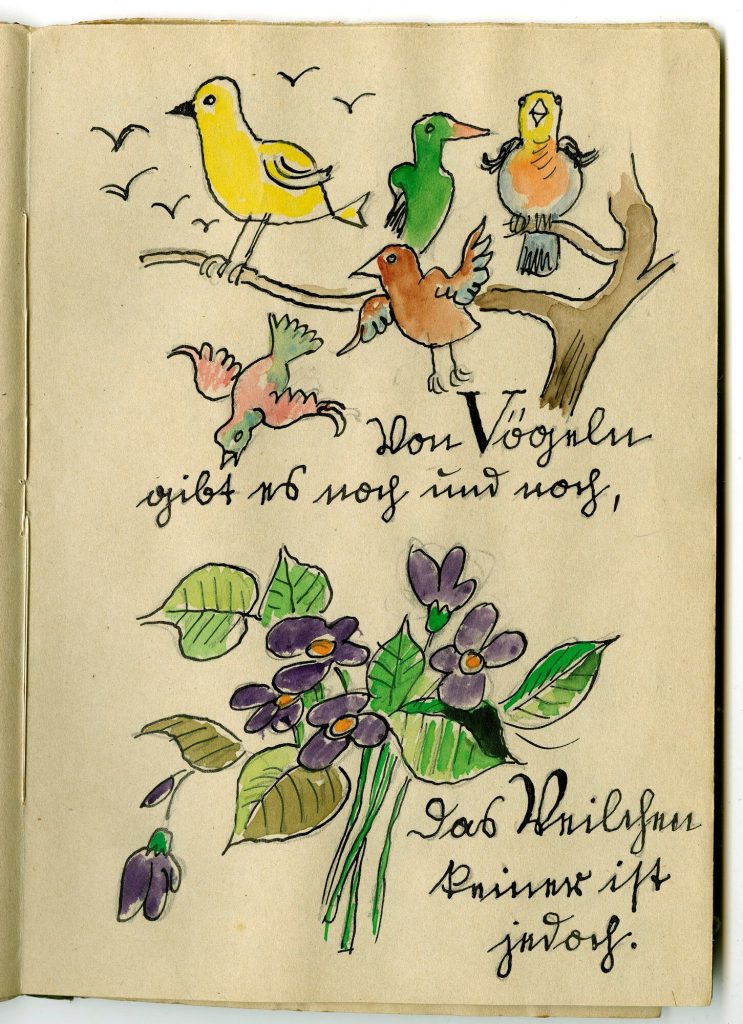 Von Vögeln
gibt es noch und noch,
Das Veilchen
keiner ist
jedoch.